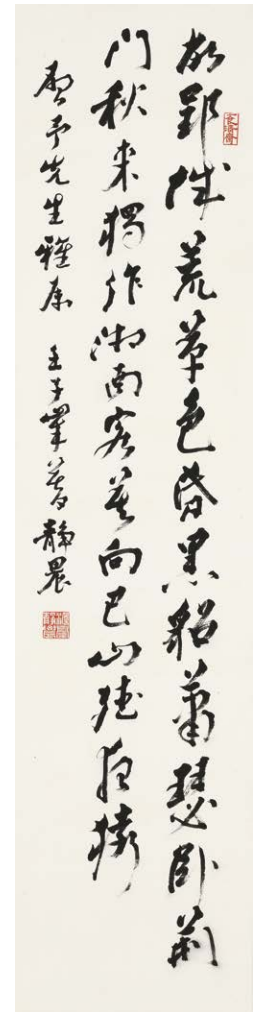 故郢城荒草色昏黑貂蕭瑟卧荊
門秋來獨作湘南客莫向巴山聽夜猿
予先生雅屬 壬子 靜農